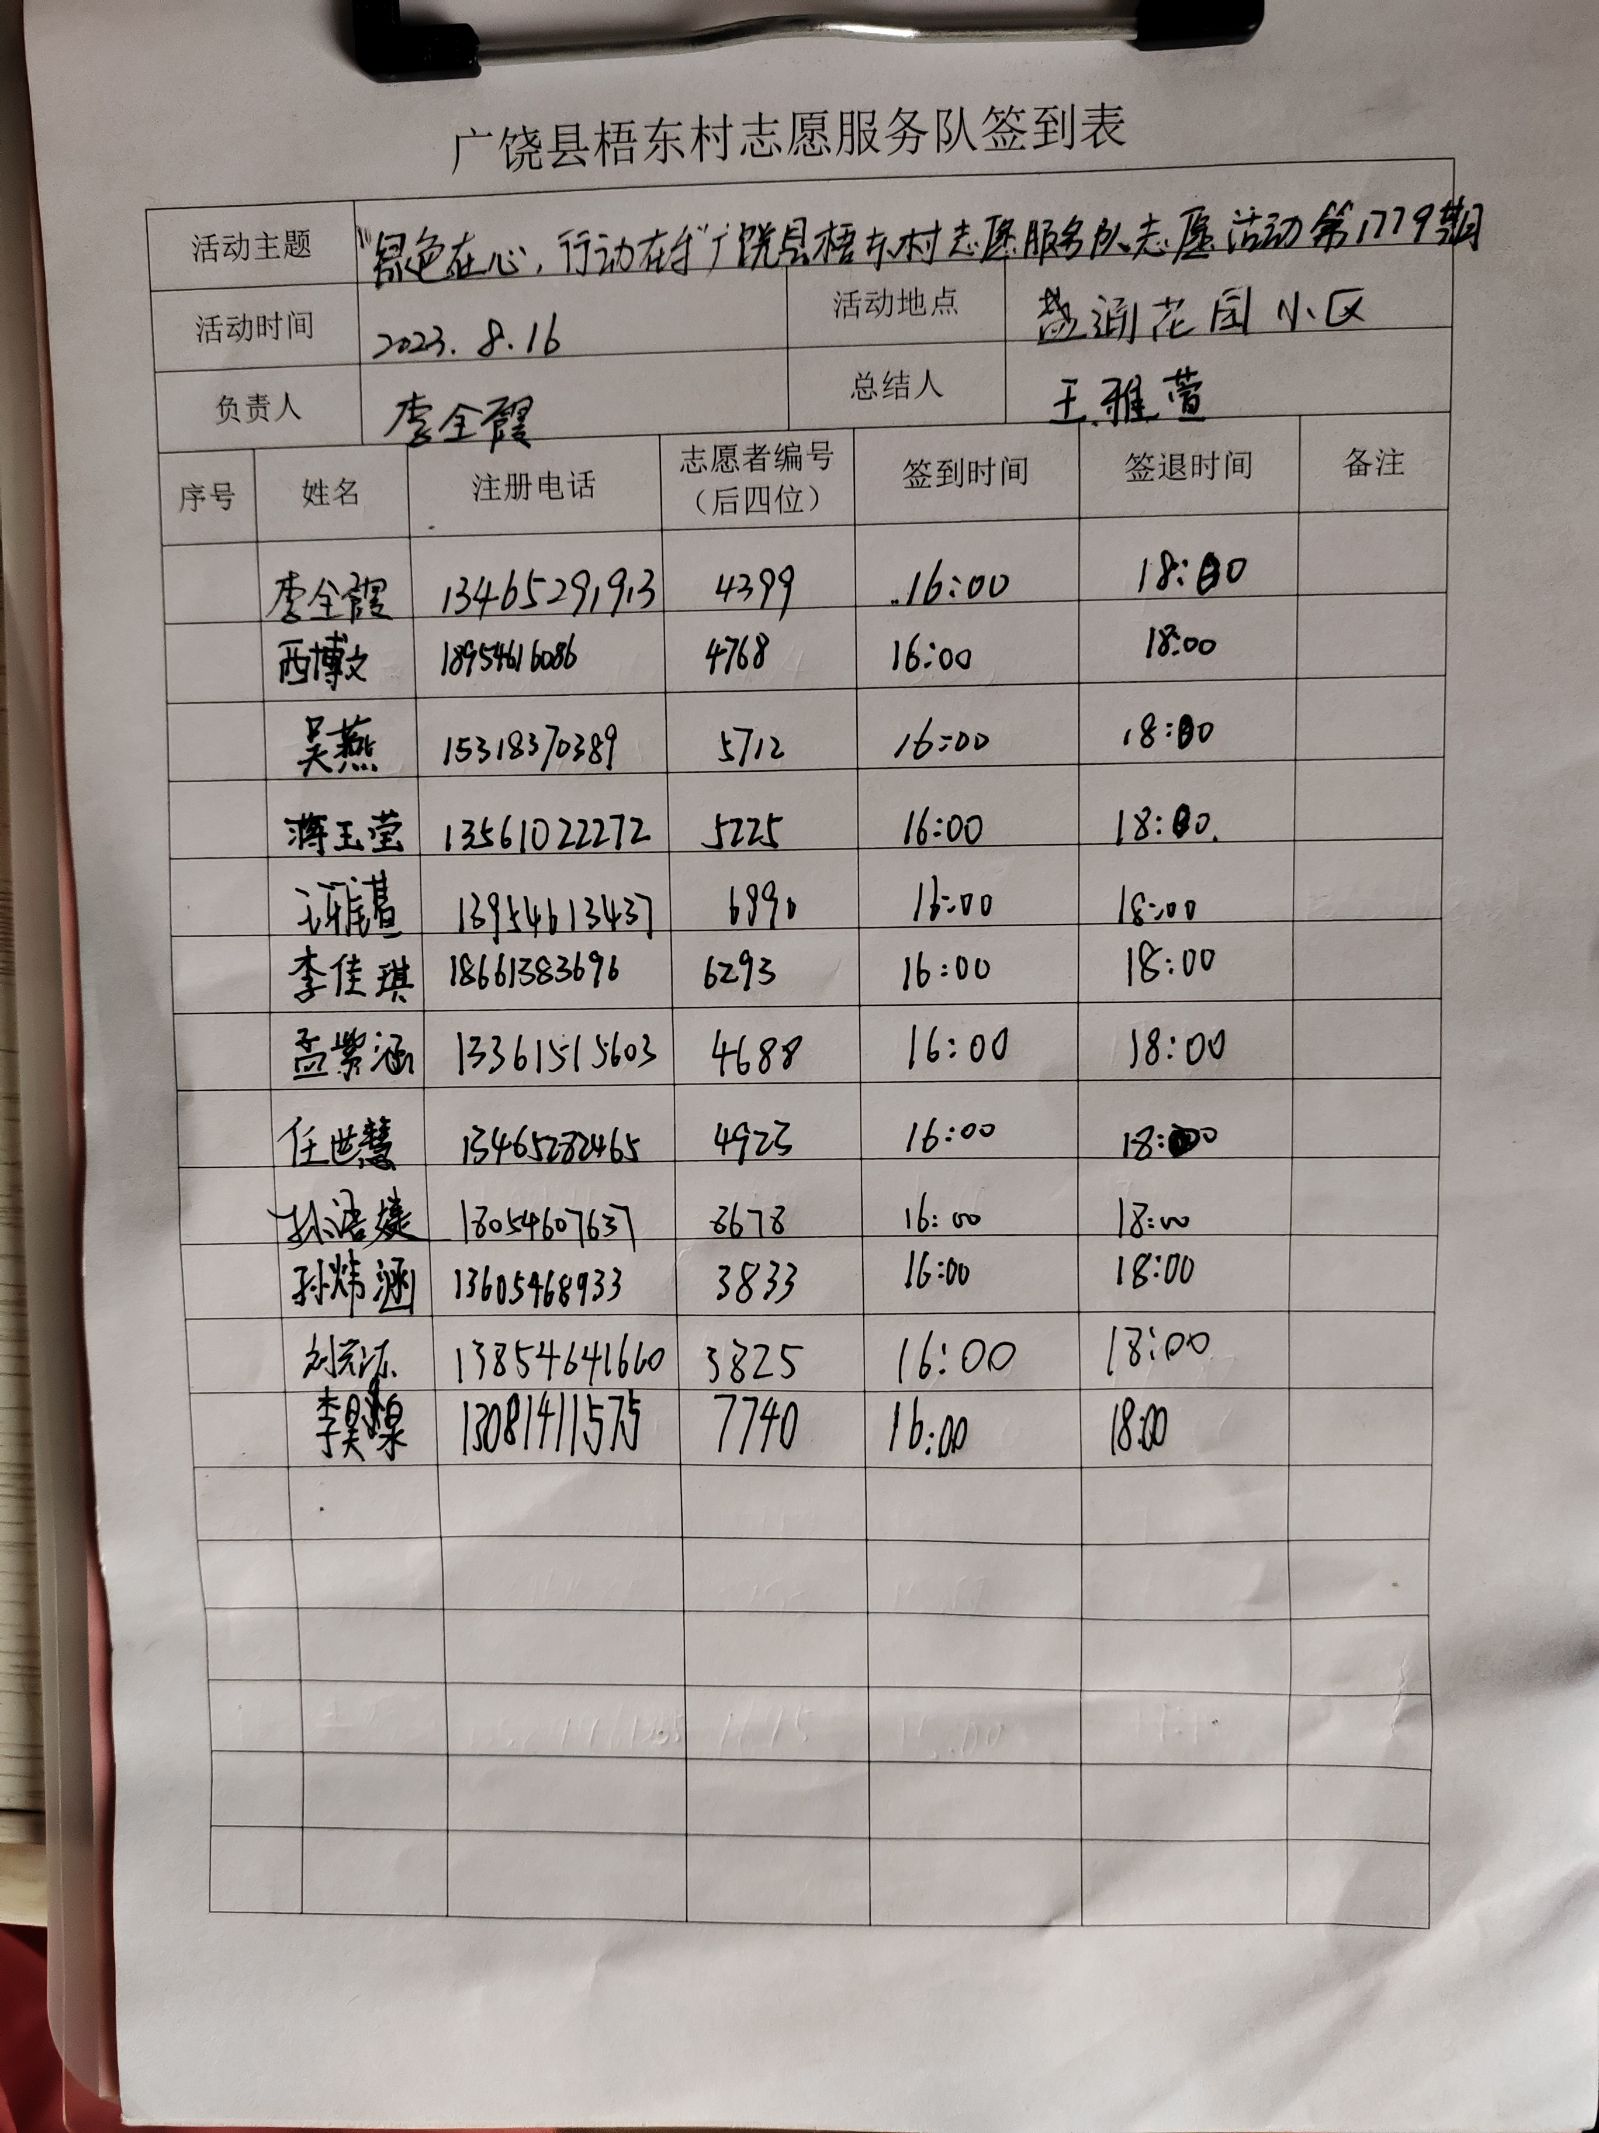 广饶县梧东村志愿服务队签到表
活动主题 "绿色在心,行动在手"广饶县梧东村志愿服务队志愿活动第1779期
活动时间 2023.8.16 活动地点 润花园小区
负责人 李全霞 总结人 王雅萱
序号 姓名 注册电话 志愿者编号(后四位) 签到时间 签退时间 备注
李全霞 13465291913 4399 16:00 18:00
西博文 18954616086 4768 16:00 18:00
吴燕 15318370389 5712 16:00 18:00
蒋玉莹 13561022272 5225 16:00 18:00
王雅萱 13954613437 6890 16:00 18:00
李佳琪 18661383696 6293 16:00 18:00
孟紫涵 13361515603 4688 16:00 18:00
任世慧 13465282465 4923 16:00 18:00
孙浩婕 18054607637 8678 16:00 18:00
孙炜涵 13605468933 3833 16:00 18:00
刘 13854641660 3825 16:00 18:00
李昊 13081411575 7740 16:00 18:00